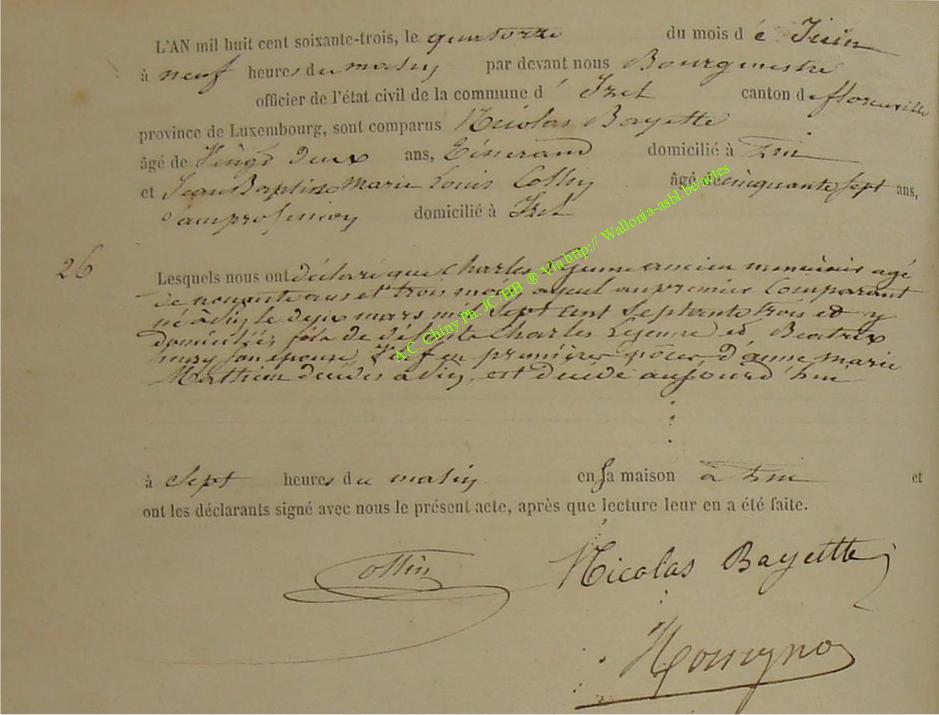 L'AN mil huit cent soixante-trois, le quatorze du mois d e Juin
à neuf heures du matin par devant nous Bourgmestre
officier de l'état civil de la commune d' Izel canton de florenville
province de Luxembourg, sont comparus Nicolas Bayette
âgé de Vingt deux ans, domicilié à
et Jean Baptiste Marie Louis Collin âgé de cinquante sept ans,
domicilié à Izel
26
Lesquels nous ont déclaré que Charles Lejeune ancien agé
de nonante ans et trois mois ayeul au premier Comparant
né à le deux mars mil sept cent septante trois et y
domicilié, fils de Charles Lejeune et Beatrix
son épouse, Veuf en premières nôces d'anne marie
Mathieu décédée à est décédé aujourd'hui
à sept heures du matin en sa maison à et
ont les déclarants signé avec nous le présent acte, après que lecture leur en a été faite.
Collin Nicolas Bayette
A.C. Chiny Ph. JC/HB ® Via http:// Wallonia-asbl.be/notes